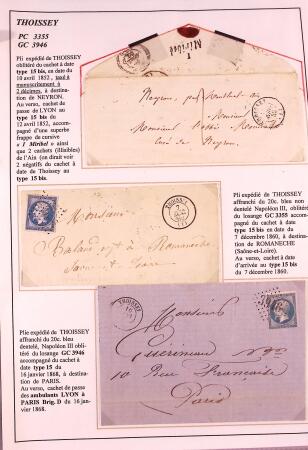 THOISSEY
PC 3355
GC 3946
Pli expédié de THOISSEY
oblitéré du cachet à date
type 15 bis, en date du
10 avril 1852, taxé à
manuscritement à
2 décimes, à destina-
tion de NEYRON.
Au verso, cachet de
passe de LYON au
type 15 bis du
12 avril 1852, accom-
pagné d'une superbe
frappe de cursive
« 1 Miribel » ainsi
que 2 cachets (illisibles)
de l'Ain (on dirait voir
2 négatifs du cachet à
date de Thoissey au
type 15 bis.
1
Miribel
Neyron, par
Monsieur
Monsieur
Curé de Neyron.
Pli expédié de THOISSEY
affranchi du 20c. bleu non
dentelé Napoléon III, oblitéré
du losange GC 3355 accom-
pagné du cachet à date au
type 15 bis en date du
7 décembre 1860, à destina-
tion de ROMANECHE
(Saône-et-Loire).
Au verso, cachet à date
d'arrivée au type 15 bis du
7 décembre 1860.
Monsieur
Saône et Loire
Plie expédié de THOISSEY
affranchi du 20c. bleu
dentelé, Napoléon III oblité-
ré du losange GC 3946
accompagné du cachet à date
type 15 du
16 janvier 1868, à destina-
tion de PARIS.
Au verso, cachet de passe
des ambulants LYON à
PARIS Brig. D du 16 jan-
vier 1868.
THOISSEY
Monsieur
Guérineau
10 Rue Française
Paris